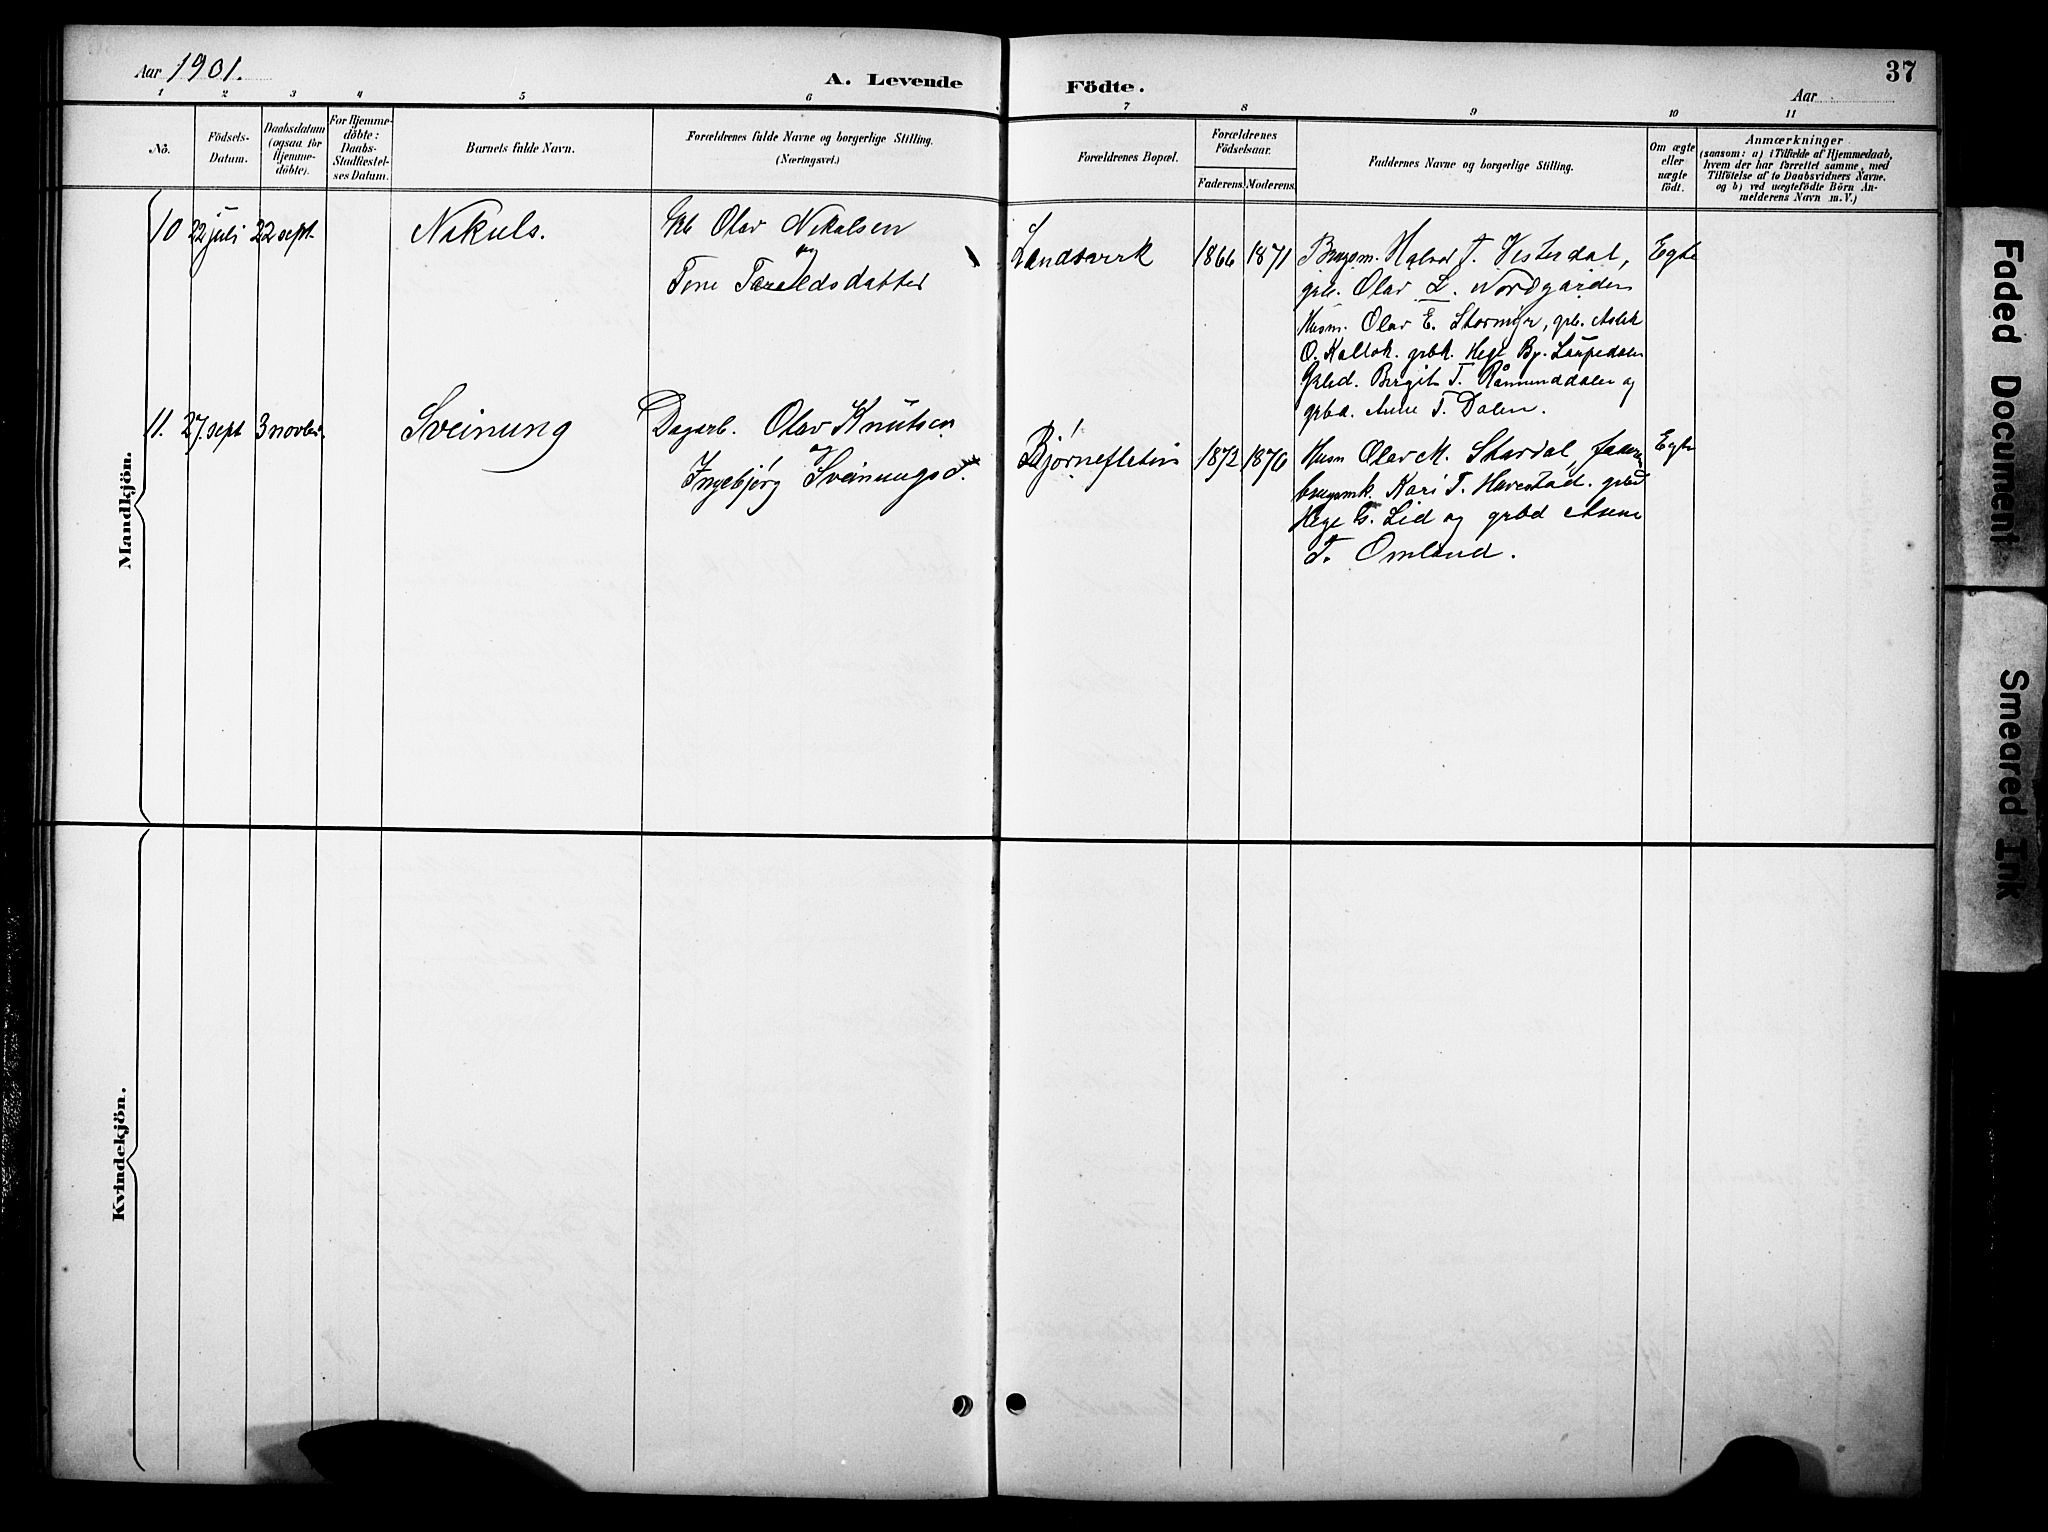 Aar 1901.
A. Levende Födte.
37
Aar
1 2 3 4 5 6 7 8 9 10 11
No.
Födsels-Datum.
Daabsdatum (ogsaa for Hjemme-döbte).
For Hjemme-döbte: Daabs-Stadfæstel-ses Datum.
Barnets fulde Navn.
Forældrenes fulde Navne og borgerlige Stilling.
(Næringsvei.)
Forældrenes Bopæl.
Forældrenes Födselsaar.
Faderens. Moderens.
Faddernes Navne og borgerlige Stilling.
Om ægte eller uægte födt.
Anmærkninger
(saasom: a) i Tilfælde af Hjemmedaab,
hvem der har forrettet samme, med
Tilföielse af to Daabsvidners Navne.
og b) ved uægtefödte Börn An-
melderens Navn m. V.)
Mandkjön.
10 22 juli 22 sept. Nikuls. Olav Nikulsen
og
Tone Taraldsdatter
Landsverk 1866 1871
Brugsm. Halvd T. Vesterdal,
grb. Olav L. Nordgarden
Husm. Olav E. Stormyr, grb. Aslak
O. Kaltok. grbk. Hege By. Laupedalen
Grbd. Bergit T. Råmunddalen og
grbd. Anne T. Dalen.
Egte
11. 27. sept 3 novbr. Sveinung
Dagarb. Olav Knutsen
og
Ingebjørg Sveinungsd.
Bjørnefletin 1872 1876
Husm Olav M. Stordal,
brugsmk. Kari T. Havestad. grbd
Hege G. Lid og grbd Anne
T. Omland.
Egte
Kvindekjön.
Faded Document
Smeared Ink